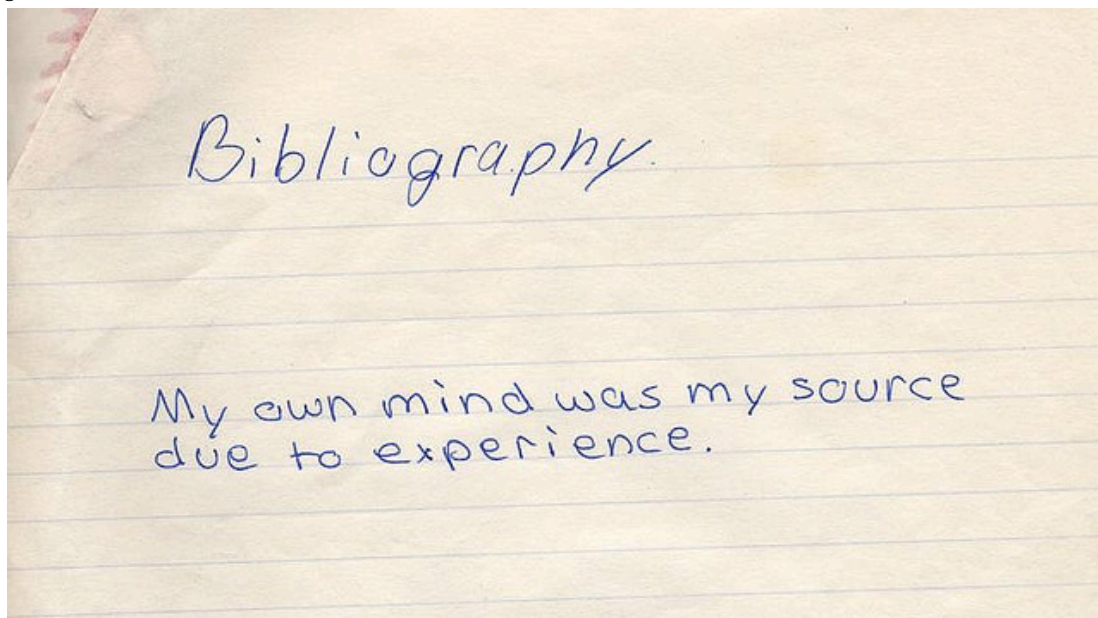 Bibliography.
My own mind was my source
due to experience.